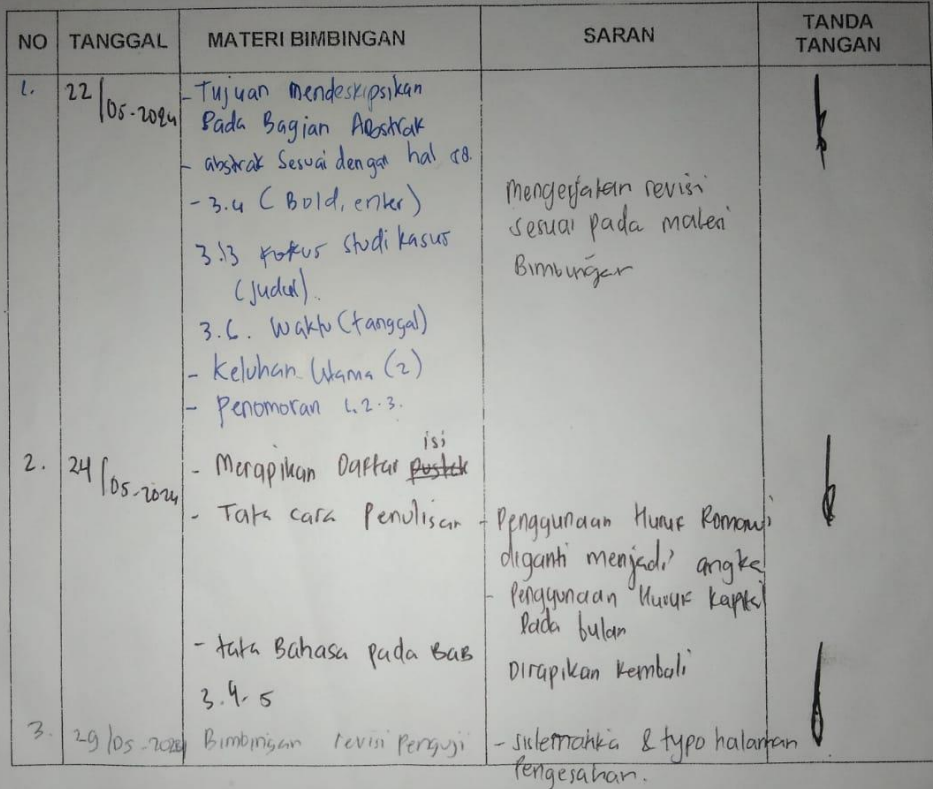 NO TANGGAL MATERI BIMBINGAN SARAN TANDA TANGAN
1. 22/05-2024
- Tujuan mendeskipsikan
Pada Bagian Abstrak
- abstrak Sesuai dengan hal
- 3.4 (Bold, enter)
3.13 Fokus studi kasus
(Judul).
3.6. Waktu (tanggal)
- Keluhan Utama (2)
- Penomoran 1.2.3.
mengerjakan revisi
sesuai pada materi
Bimbingan
2. 24/05-2024
- Merapikan Daftar isi
- Tata cara Penulisan
- Penggunaan Huruf Romawi
diganti menjadi angka
- Penggunaan Huruf Kapital
Pada bulan
- tata Bahasa pada BAB
3.4.5
Dirapikan Kembali
3. 29/05-2024 Bimbingan revisi Penguji
- sistematika & typo halaman
Pengesahan.